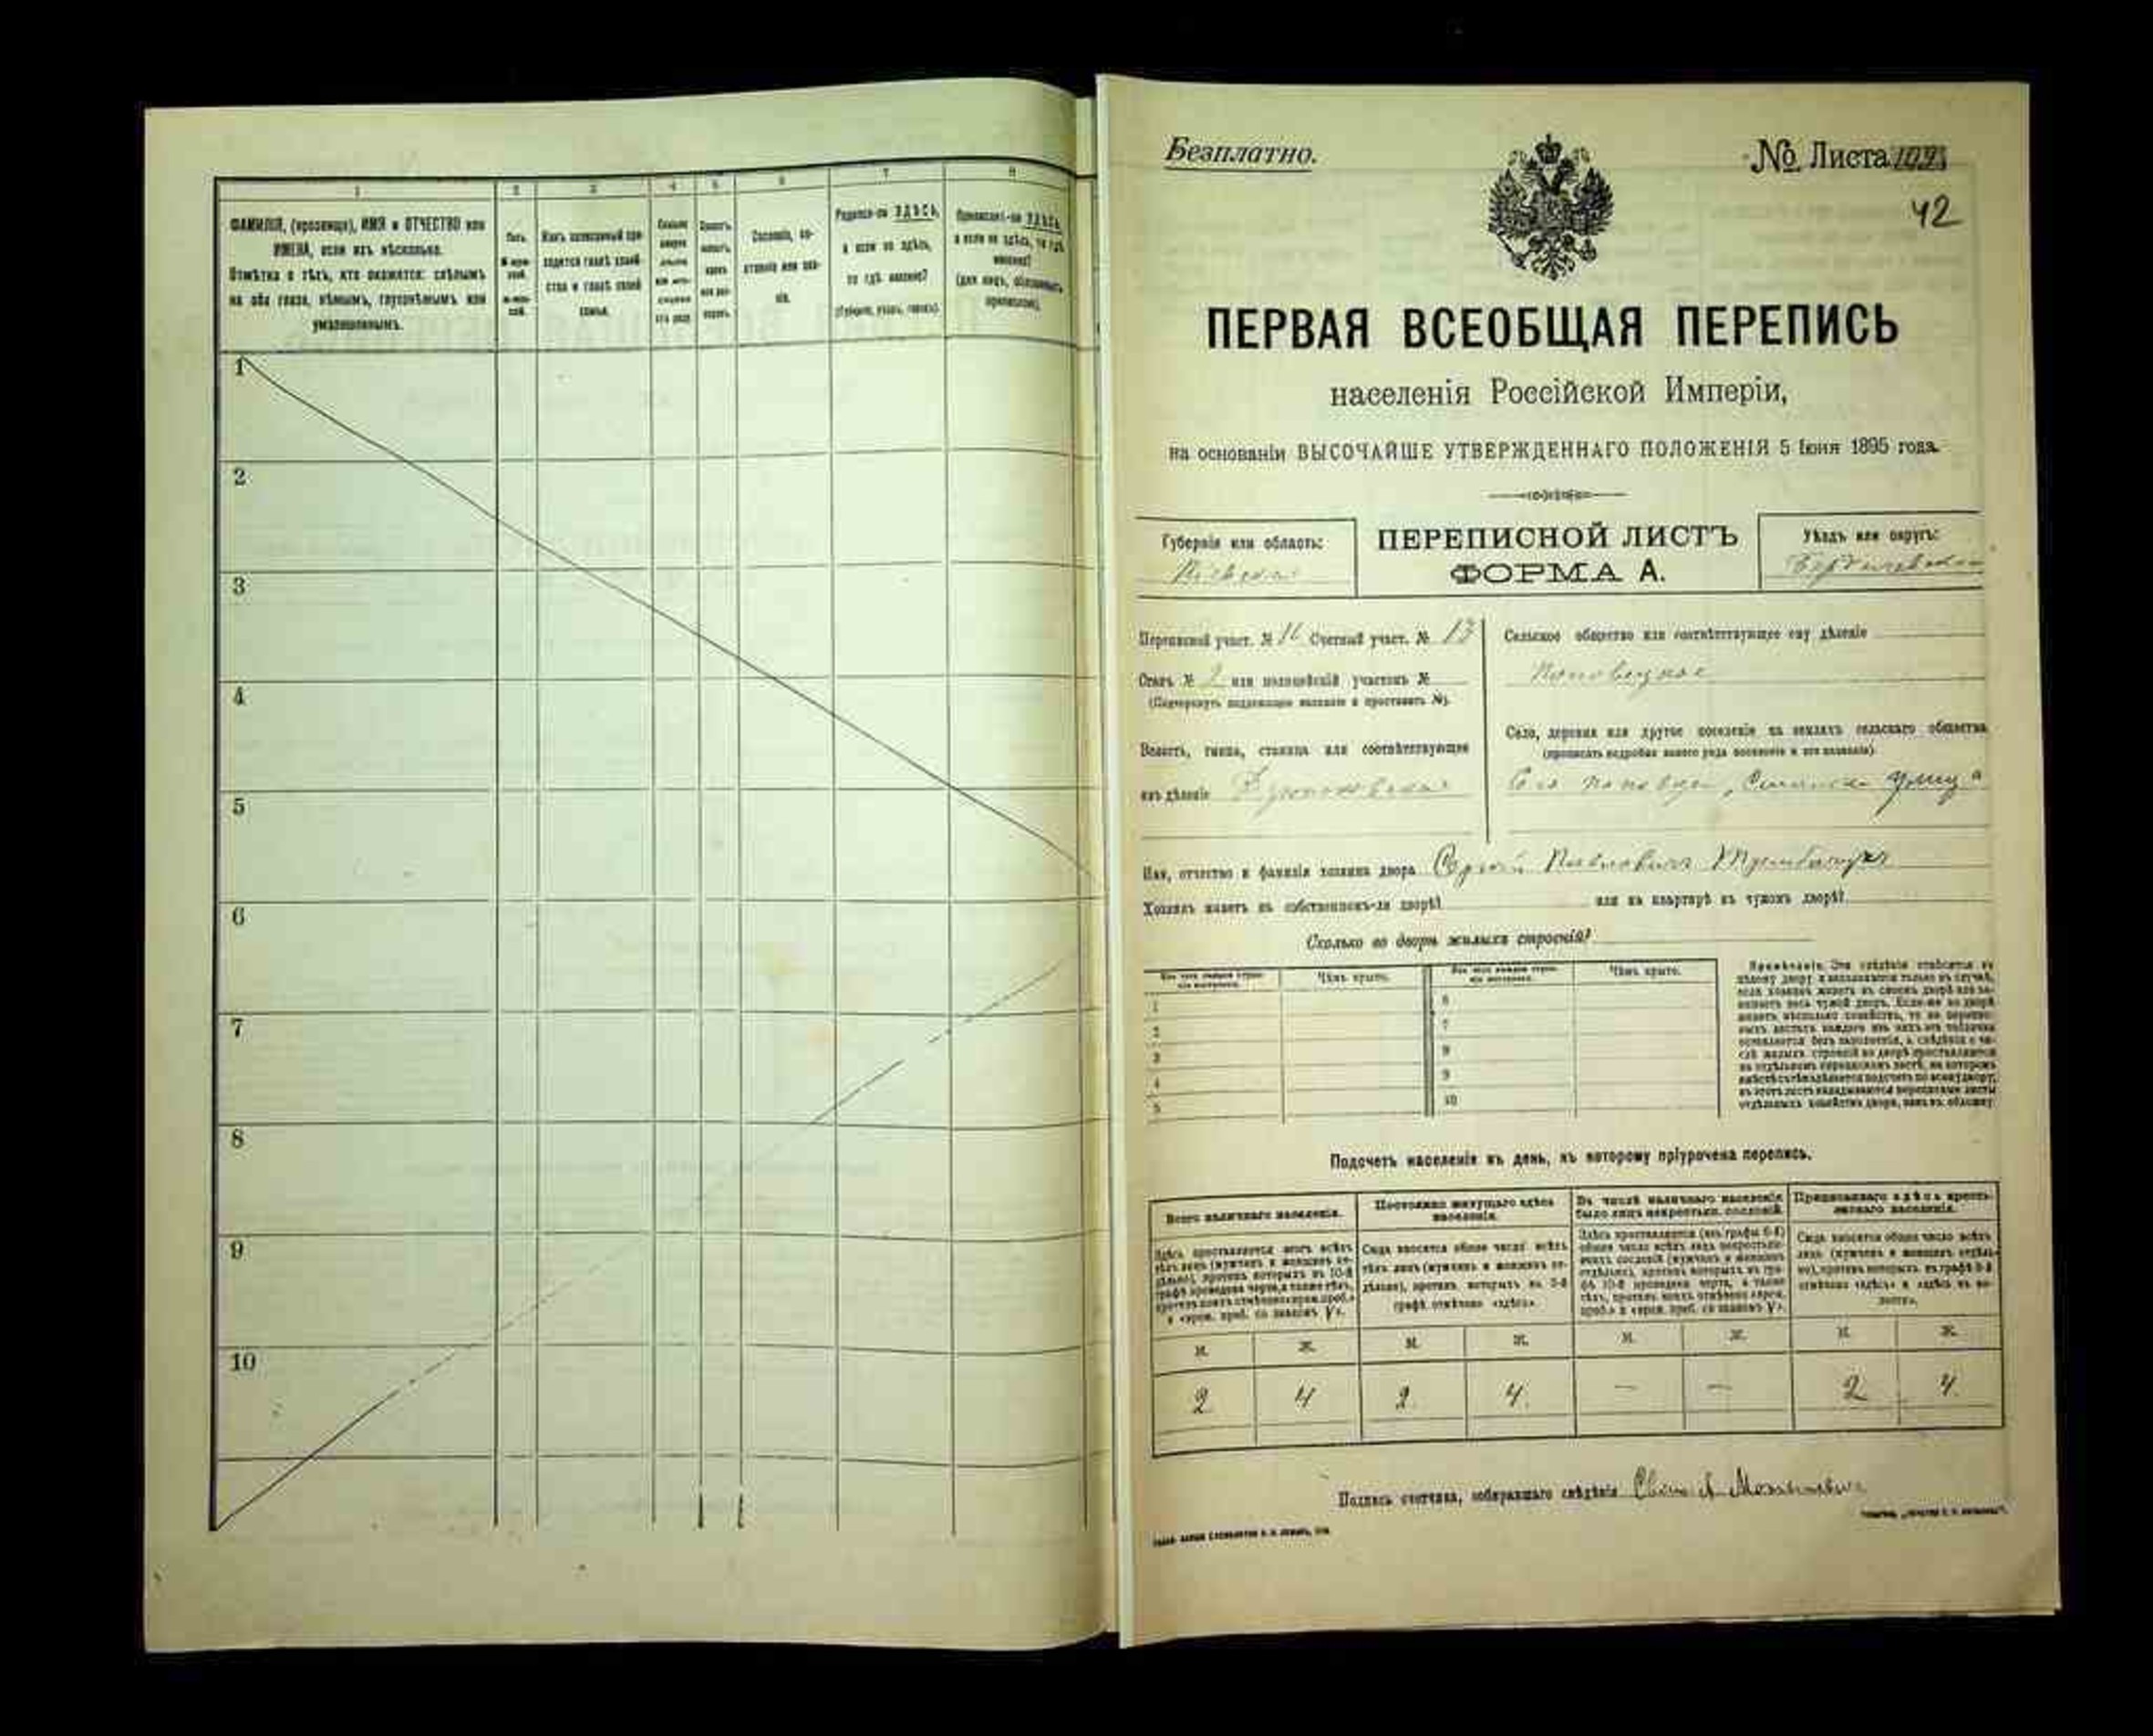 1 2 3 4 5 6 7 8
ФАМИЛІЯ, (прозвище), ИМЯ и ОТЧЕСТВО или
ИМЕНА, если ихъ нѣсколько.
Отмѣтка о тѣхъ, кто окажется: слѣпымъ
на оба глаза, нѣмымъ, глухонѣмымъ или
умалишеннымъ.
Полъ.
Какъ записанный при-
ходится главѣ хозяй-
ства и главѣ своей
семьи.
Сословіе, со-
стояніе или зва-
ніе.
Родился-ли ЗДѢСЬ,
а если не здѣсь,
то гдѣ именно?
(Губернія, уѣздъ, городъ).
Приписанъ-ли ЗДѢСЬ,
а если не здѣсь, то гдѣ
именно?
(для лицъ, обязанныхъ
припискою).
1
2
3
4
5
6
7
8
9
10
Безплатно.
№ Листа
42
ПЕРВАЯ ВСЕОБЩАЯ ПЕРЕПИСЬ
населенія Россійской Имперіи,
на основаніи ВЫСОЧАЙШЕ УТВЕРЖДЕННАГО ПОЛОЖЕНІЯ 5 Іюня 1895 года.
Губернія или область:
Кіевская
ПЕРЕПИСНОЙ ЛИСТЪ
ФОРМА А.
Уѣздъ или округъ:
Бердичевскій
Переписной участ. № Счетный участ. № 13
Станъ № 2 или полицейскій участокъ №
(Подчеркнуть подлежащее названіе и проставить №).
Волость, гмина, станица или соотвѣтствующее
имъ дѣленіе
Сельское общество или соотвѣтствующее ему дѣленіе
Село, деревня или другое поселеніе на земляхъ сельскаго общества
(прописать подробно какого рода поселеніе и его названіе)
улица
Имя, отчество и фамилія хозяина двора Сергій Павловичъ
Хозяинъ живетъ въ собственномъ-ли дворѣ? или на квартирѣ въ чужомъ дворѣ?
Сколько во дворѣ жилыхъ строеній?
Изъ чего каждое строе-
ніе выстроено.
Чѣмъ крыто.
Изъ чего каждое строе-
ніе выстроено.
Чѣмъ крыто.
1
2
3
4
5
6
7
8
9
10
Примѣчаніе. Эти свѣдѣнія относятся къ
цѣлому двору и заполняются только въ случаѣ,
если хозяинъ живетъ въ своемъ дворѣ или за-
нимаетъ весь чужой дворъ. Если-же во дворѣ
живетъ нѣсколько хозяйствъ, то на перепис-
ныхъ листахъ каждаго изъ нихъ эта табличка
оставляется безъ заполненія, а свѣдѣнія о чи-
слѣ жилыхъ строеній во дворѣ проставляются
на отдѣльномъ переписномъ листѣ, на которомъ
вмѣстѣ съ тѣмъ дѣлается подсчетъ по всему двору;
въ этотъ листъ вкладываются переписные листы
отдѣльныхъ хозяйствъ двора, какъ въ обложку.
Подсчетъ населенія въ день, къ которому пріурочена перепись.
Всего наличнаго населенія.
Постоянно живущаго здѣсь
населенія.
Въ числѣ наличнаго населенія
было лицъ некрестьян. сословій.
Приписаннаго здѣсь кресть-
янскаго населенія.
Здѣсь проставляется итогъ всѣхъ
тѣхъ лицъ (мужчинъ и женщинъ от-
дѣльно), противъ которыхъ въ 10-й
графѣ проведена черта, а также тѣхъ,
противъ коихъ отмѣчено «врем. преб.»
и «врем. преб. со знакомъ V».
Сюда вносится общее число всѣхъ
тѣхъ лицъ (мужчинъ и женщинъ от-
дѣльно), противъ которыхъ въ 9-й
графѣ отмѣчено «здѣсь».
Здѣсь проставляется (изъ графы 6-й)
общее число всѣхъ лицъ некрестьян-
скихъ сословій (мужчинъ и женщинъ
отдѣльно), противъ которыхъ въ гра-
фѣ 10-й проведена черта, а также
тѣхъ, противъ коихъ отмѣчено «врем.
преб.» и «врем. преб. со знакомъ V».
Сюда вносится общее число всѣхъ
лицъ (мужчинъ и женщинъ отдѣль-
но), противъ которыхъ въ графѣ 8-й
отмѣчено «здѣсь» и «здѣсь въ во-
лости».
М. Ж. М. Ж. М. Ж. М. Ж.
2 4 2 4 — — 2 4
Подпись счетчика, собиравшаго свѣдѣнія